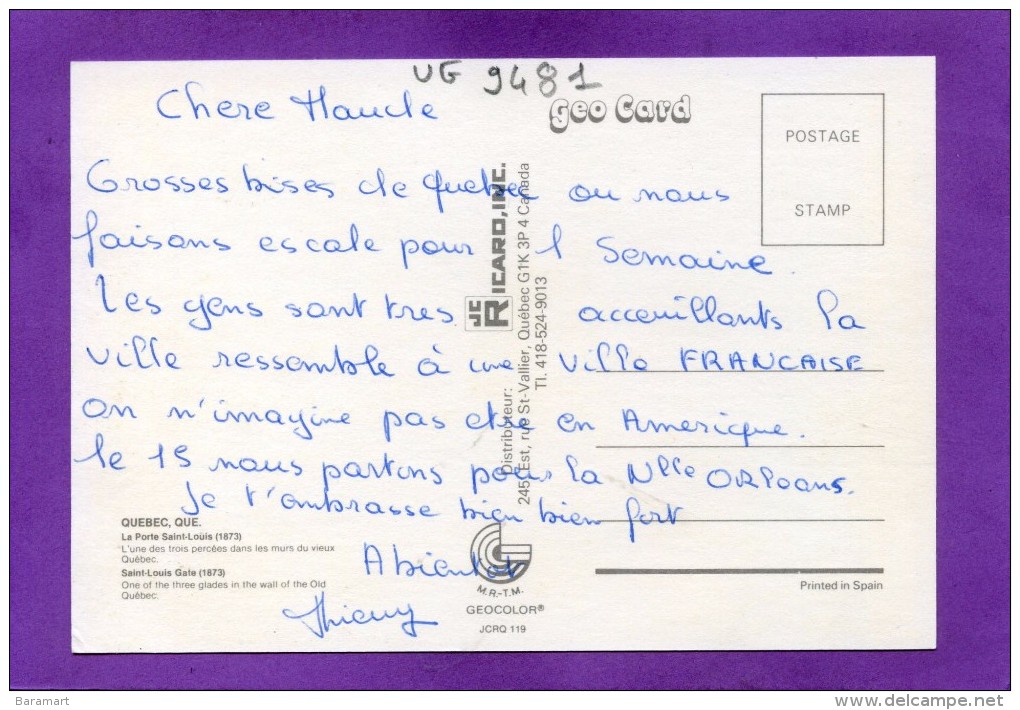 UG 9481
Chere Maude
geo Card
POSTAGE
STAMP
Grosses bises de Quebec ou nous
faisons escale pour 1 Semaine.
Les gens sont tres acceuillants la
ville ressemble à une ville FRANCAISE
on n'imagine pas etre en Amerique.
le 19 nous partons pour la Nlle ORleans.
Je t'embrasse bien bien fort
A bientot
Thierry
JC RICARD, INC.
Distributeur:
245 Est, rue St-Vallier, Québec G1K 3P 4 Canada
Tl. 418-524-9013
QUEBEC, QUE.
La Porte Saint-Louis (1873)
L'une des trois percées dans les murs du vieux
Québec.
Saint-Louis Gate (1873)
One of the three glades in the wall of the Old
Québec.
M.R.-T.M.
GEOCOLOR®
JCRQ 119
Printed in Spain
Baramart
www.delcampe.net